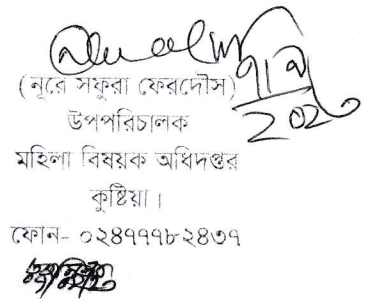 (নূরে সফুরা ফেরদৌস)
উপপরিচালক
মহিলা বিষয়ক অধিদপ্তর
কুষ্টিয়া।
ফোন- ০২৪৭৭৭৮২৪৩৭